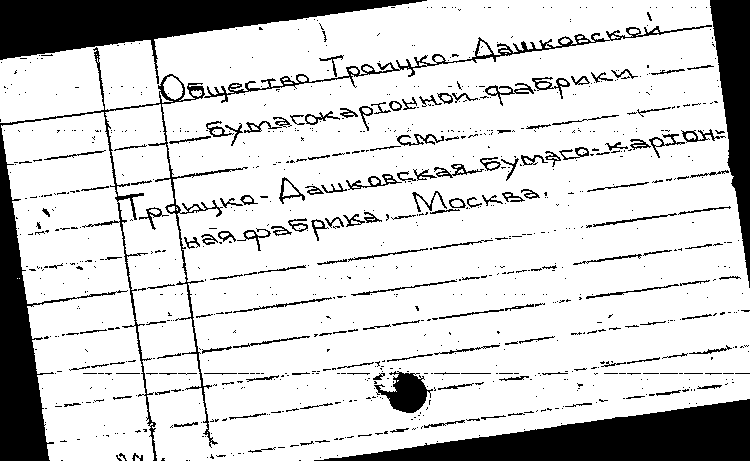 Общество Троицко-Дашковской
бумагокартонной фабрики.
см.
Троицко-Дашковская бумаго-картон=
ная фабрика. Москва.